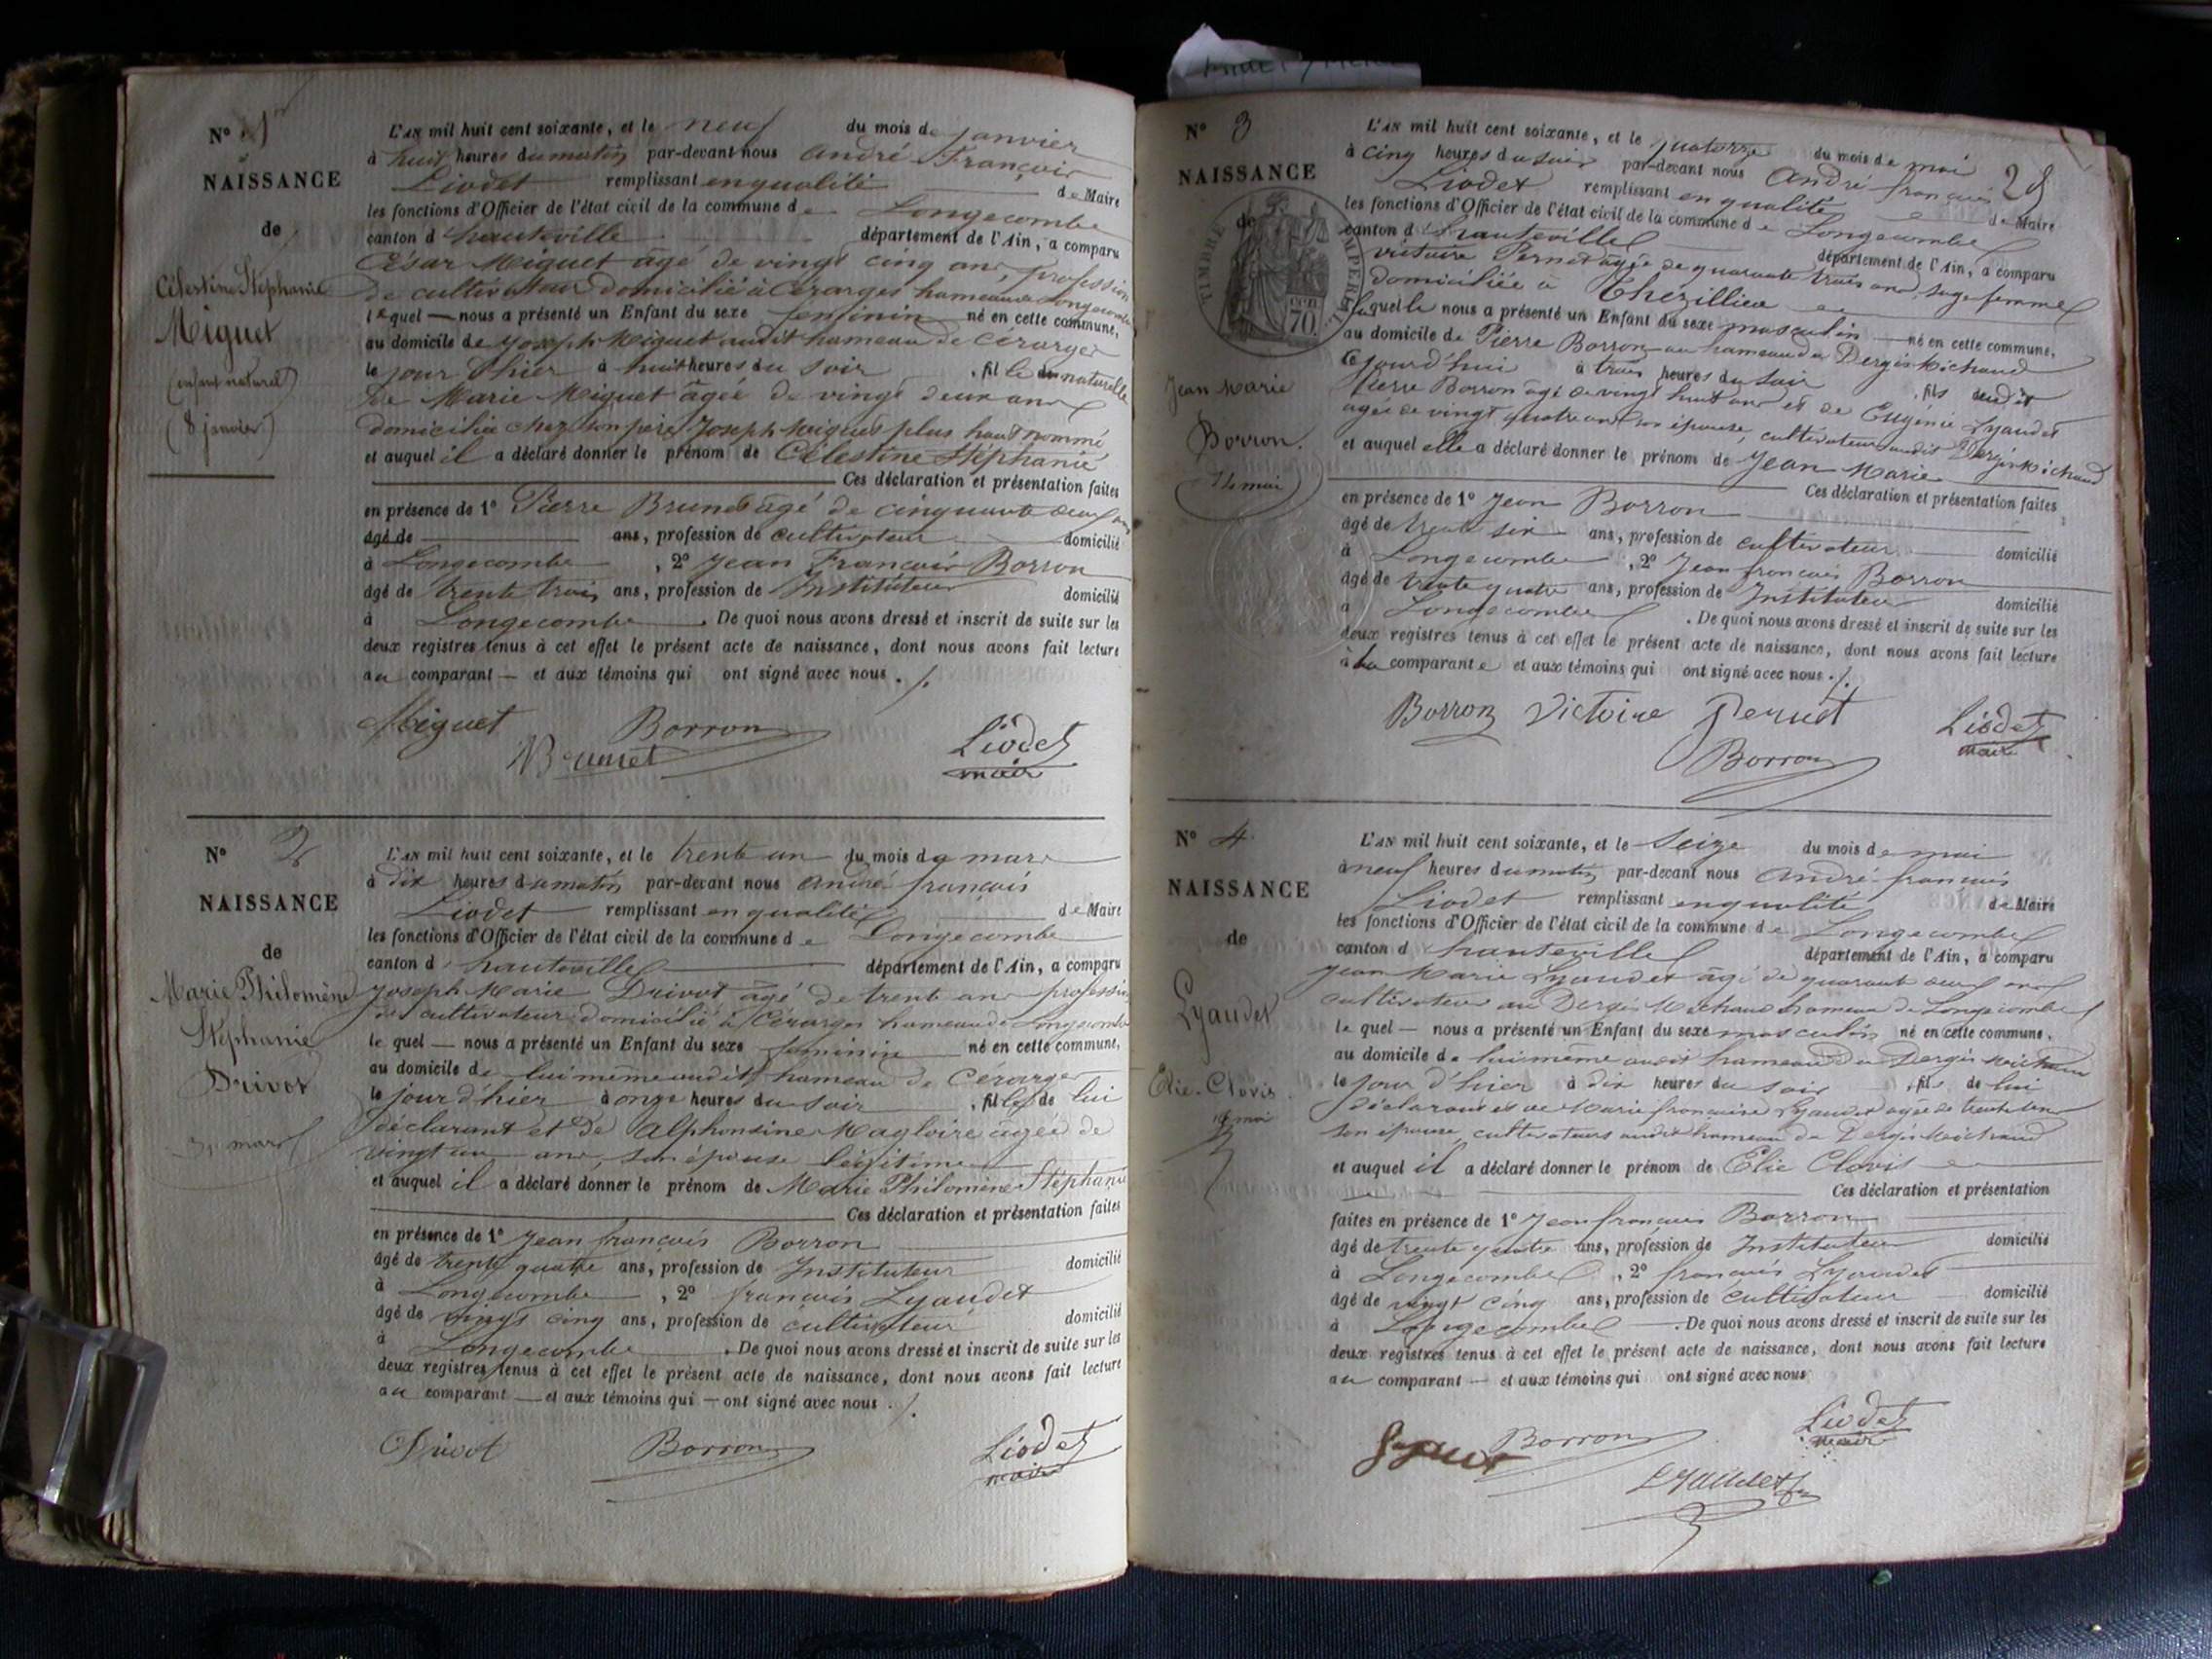 N° 1
NAISSANCE
de
Célestine Stéphanie
Miguet
(enfant naturel)
(8 janvier)
L'AN mil huit cent soixante, et le neuf du mois de janvier
à huit heures du matin par-devant nous André François
Liodet remplissant en qualité de Maire
les fonctions d'Officier de l'état civil de la commune de Longecombe
canton d'hauteville département de l'Ain, a comparu
César Miguet âgé de vingt cinq ans, profession
de cultivateur domicilié à Cérarges hameau de Longecombe
lequel — nous a présenté un Enfant du sexe féminin né en cette commune,
au domicile de Joseph Miguet audit hameau de Cérarges
le jour d'hier à huit heures du soir, fille naturelle
de Marie Miguet âgée de vingt deux ans
domiciliée chez son père Joseph Miguet plus haut nommé
et auquel il a déclaré donner le prénom de Célestine Stéphanie
Ces déclaration et présentation faites
en présence de 1° Pierre Brunet âgé de cinquante deux ans
âgé de ans, profession de cultivateur domicilié
à Longecombe, 2° Jean François Borron
âgé de trente trois ans, profession de Instituteur domicilié
à Longecombe. De quoi nous avons dressé et inscrit de suite sur les
deux registres tenus à cet effet le présent acte de naissance, dont nous avons fait lecture
au comparant — et aux témoins qui ont signé avec nous ./.
Miguet Borron Liodet
Brunet maire
N° 2
NAISSANCE
de
Marie Philomène
Stéphanie
Drivot
31 mars
L'AN mil huit cent soixante, et le trente un du mois de mars
à dix heures du matin par-devant nous André françois
Liodet remplissant en qualité de Maire
les fonctions d'Officier de l'état civil de la commune de Longecombe
canton d'hauteville département de l'Ain, a comparu
Joseph Marie Drivot âgé de trente ans profession
de cultivateur domicilié à Cérarges hameau de Longecombe
le quel — nous a présenté un Enfant du sexe féminin né en cette commune,
au domicile de lui même audit hameau de Cérarges
le jour d'hier à onze heures du soir, fille de lui
déclarant et de Alphonsine Magloire âgée de
vingt un ans, son épouse légitime
et auquel il a déclaré donner le prénom de Marie Philomène Stéphanie
Ces déclaration et présentation faites
en présence de 1° Jean françois Borron
âgé de trente quatre ans, profession de Instituteur domicilié
à Longecombe, 2° françois Lyaudet
âgé de vingt cinq ans, profession de cultivateur domicilié
à Longecombe. De quoi nous avons dressé et inscrit de suite sur les
deux registres tenus à cet effet le présent acte de naissance, dont nous avons fait lecture
au comparant — et aux témoins qui — ont signé avec nous ./.
Drivot Borron Liodet
maire
28
N° 3
NAISSANCE
de
TIMBRE IMPERIAL
70
Jean Marie
Borron.
14 mai
L'AN mil huit cent soixante, et le quatorze du mois de mai
à cinq heures du soir par-devant nous André françois
Liodet remplissant en qualité de Maire
les fonctions d'Officier de l'état civil de la commune de Longecombe
canton d'hauteville département de l'Ain, a comparu
victoire Pernet âgée de quarante trois ans, sage femme
domiciliée à Thézillieu
laquelle nous a présenté un Enfant du sexe masculin né en cette commune,
au domicile de Pierre Borron au hameau du Dergis Michaud
ce jourd'hui à trois heures du soir, fils dudit
Pierre Borron âgé de vingt huit ans et de Eugénie Lyaudet
âgée de vingt quatre ans son épouse, cultivateurs audit Dergis Michaud
et auquel elle a déclaré donner le prénom de Jean Marie
Ces déclaration et présentation faites
en présence de 1° Jean Borron
âgé de trente six ans, profession de cultivateur domicilié
à Longecombe, 2° Jean françois Borron
âgé de trente quatre ans, profession de Instituteur domicilié
à Longecombe. De quoi nous avons dressé et inscrit de suite sur les
deux registres tenus à cet effet le présent acte de naissance, dont nous avons fait lecture
à la comparante et aux témoins qui ont signé avec nous ./.
Borron Victoire Pernet Liodet
Borron maire
N° 4
NAISSANCE
de
Lyaudet
Elie-Clovis
mai
L'AN mil huit cent soixante, et le Seize du mois de mai
à neuf heures du matin par-devant nous André françois
Liodet remplissant en qualité de Maire
les fonctions d'Officier de l'état civil de la commune de Longecombe
canton d'hauteville département de l'Ain, a comparu
Jean Marie Lyaudet âgé de quarante deux ans
cultivateur au Dergis Michaud hameau de Longecombe
le quel — nous a présenté un Enfant du sexe masculin né en cette commune,
au domicile de lui même audit hameau du Dergis Michaud
le jour d'hier à dix heures du soir, fils de lui
déclarant et de Marie françoise Lyaudet âgée de trente
son épouse, cultivateurs audit hameau du Dergis Michaud
et auquel il a déclaré donner le prénom de Elie Clovis
Ces déclaration et présentation
faites en présence de 1° Jean françois Borron
âgé de trente quatre ans, profession de Instituteur domicilié
à Longecombe, 2° françois Lyaudet
âgé de vingt cinq ans, profession de cultivateur domicilié
à Longecombe. De quoi nous avons dressé et inscrit de suite sur les
deux registres tenus à cet effet le présent acte de naissance, dont nous avons fait lecture
au comparant — et aux témoins qui ont signé avec nous
Borron Liodet
maire
Lyaudet